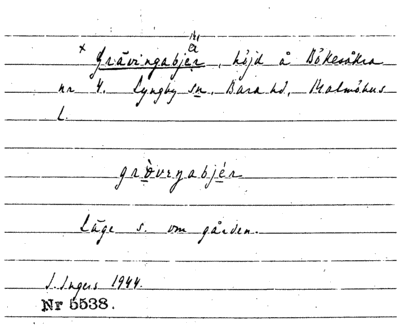 × Grävingabjer, höjd å Bökesåkra
nr 4. Lyngby sn. Bara hd. Malmöhus
l.
Läge s. om gården.
I. Ingers 1944.
Nr 5538.